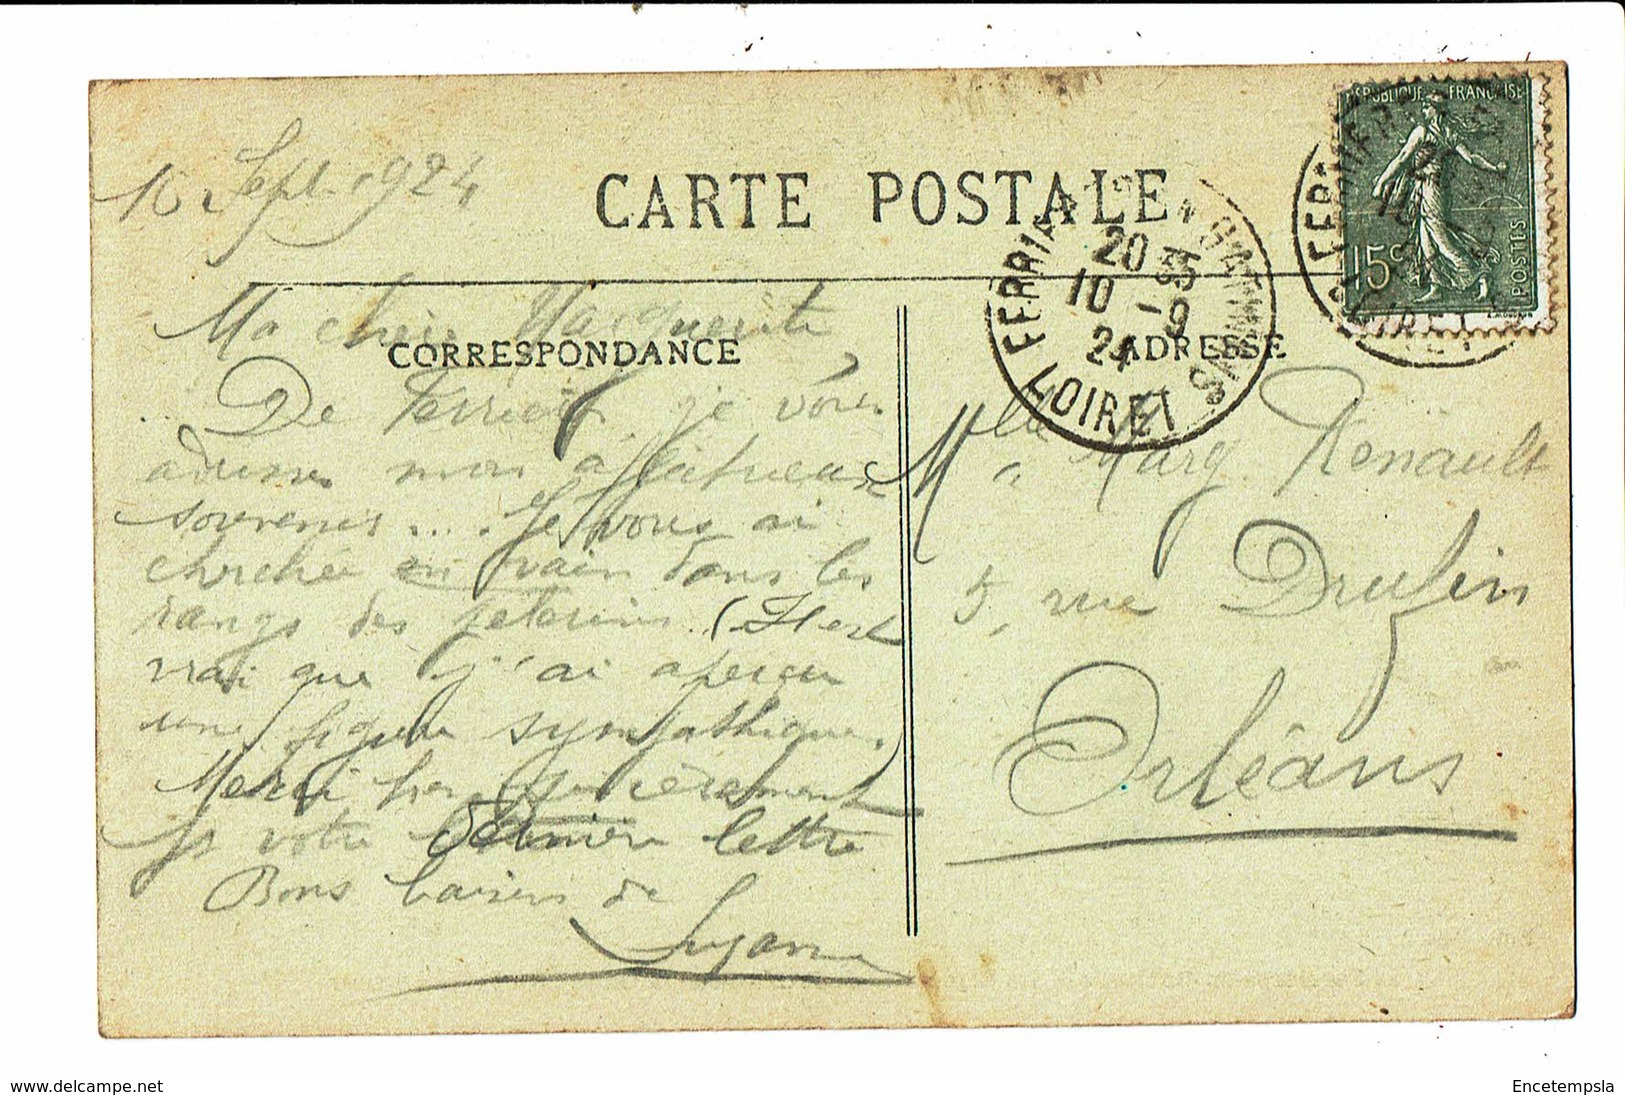 10 Sept. 1924
CARTE POSTALE
REPUBLIQUE FRANÇAISE
15c
POSTES
20 35
10 - 9
24
LOIRET
CORRESPONDANCE
ADRESSE
Ma chère Marguerite,
De Ferrières je vous
adresse mon affectueux
souvenir.... Je vous ai
cherchée en vain dans les
rangs des pèlerins (Il est
vrai que j'ai aperçu
une figure sympathique.)
Merci bien sincèrement
de votre dernière lettre
Bons baisers de
Suzanne
Mlle Marg. Renault
5, rue Drufin
Orléans
www.delcampe.net
Encetempsla